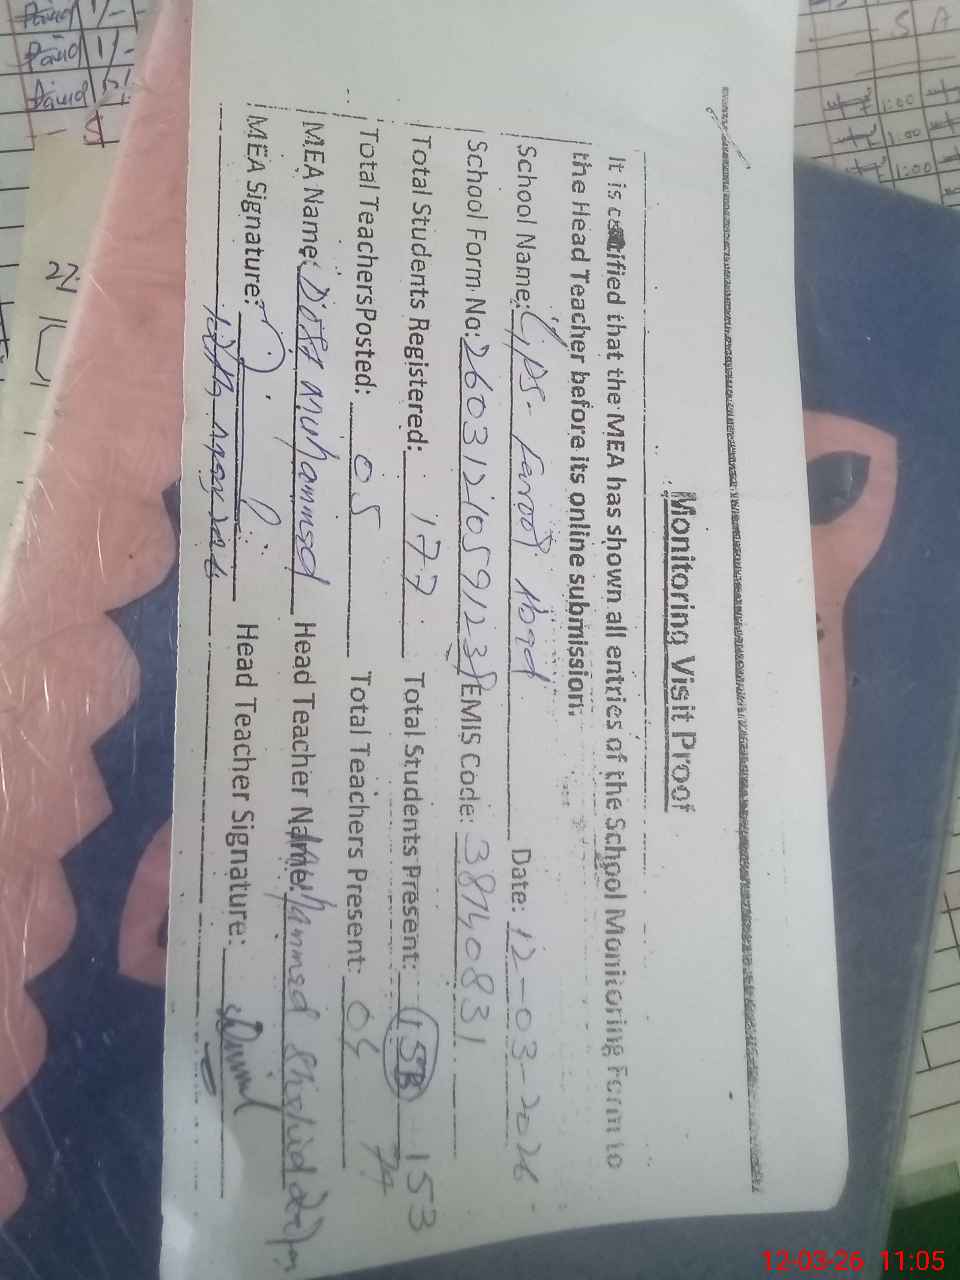 Monitoring Visit Proof
It is certified that the MEA has shown all entries of the School Monitoring Form to
the Head Teacher before its online submission.
School Name: GPS- Farooq Abad Date: 12-03-2026-
School Form No: 26031210591238 EMIS Code: 38140831
Total Students Registered: 177 Total Students Present: 153
Total Teachers Posted: 05 Total Teachers Present: 04
MEA Name: Dost Muhammed Head Teacher Name: Muhammed
MEA Signature: Head Teacher Signature:
12-03-26 11:05